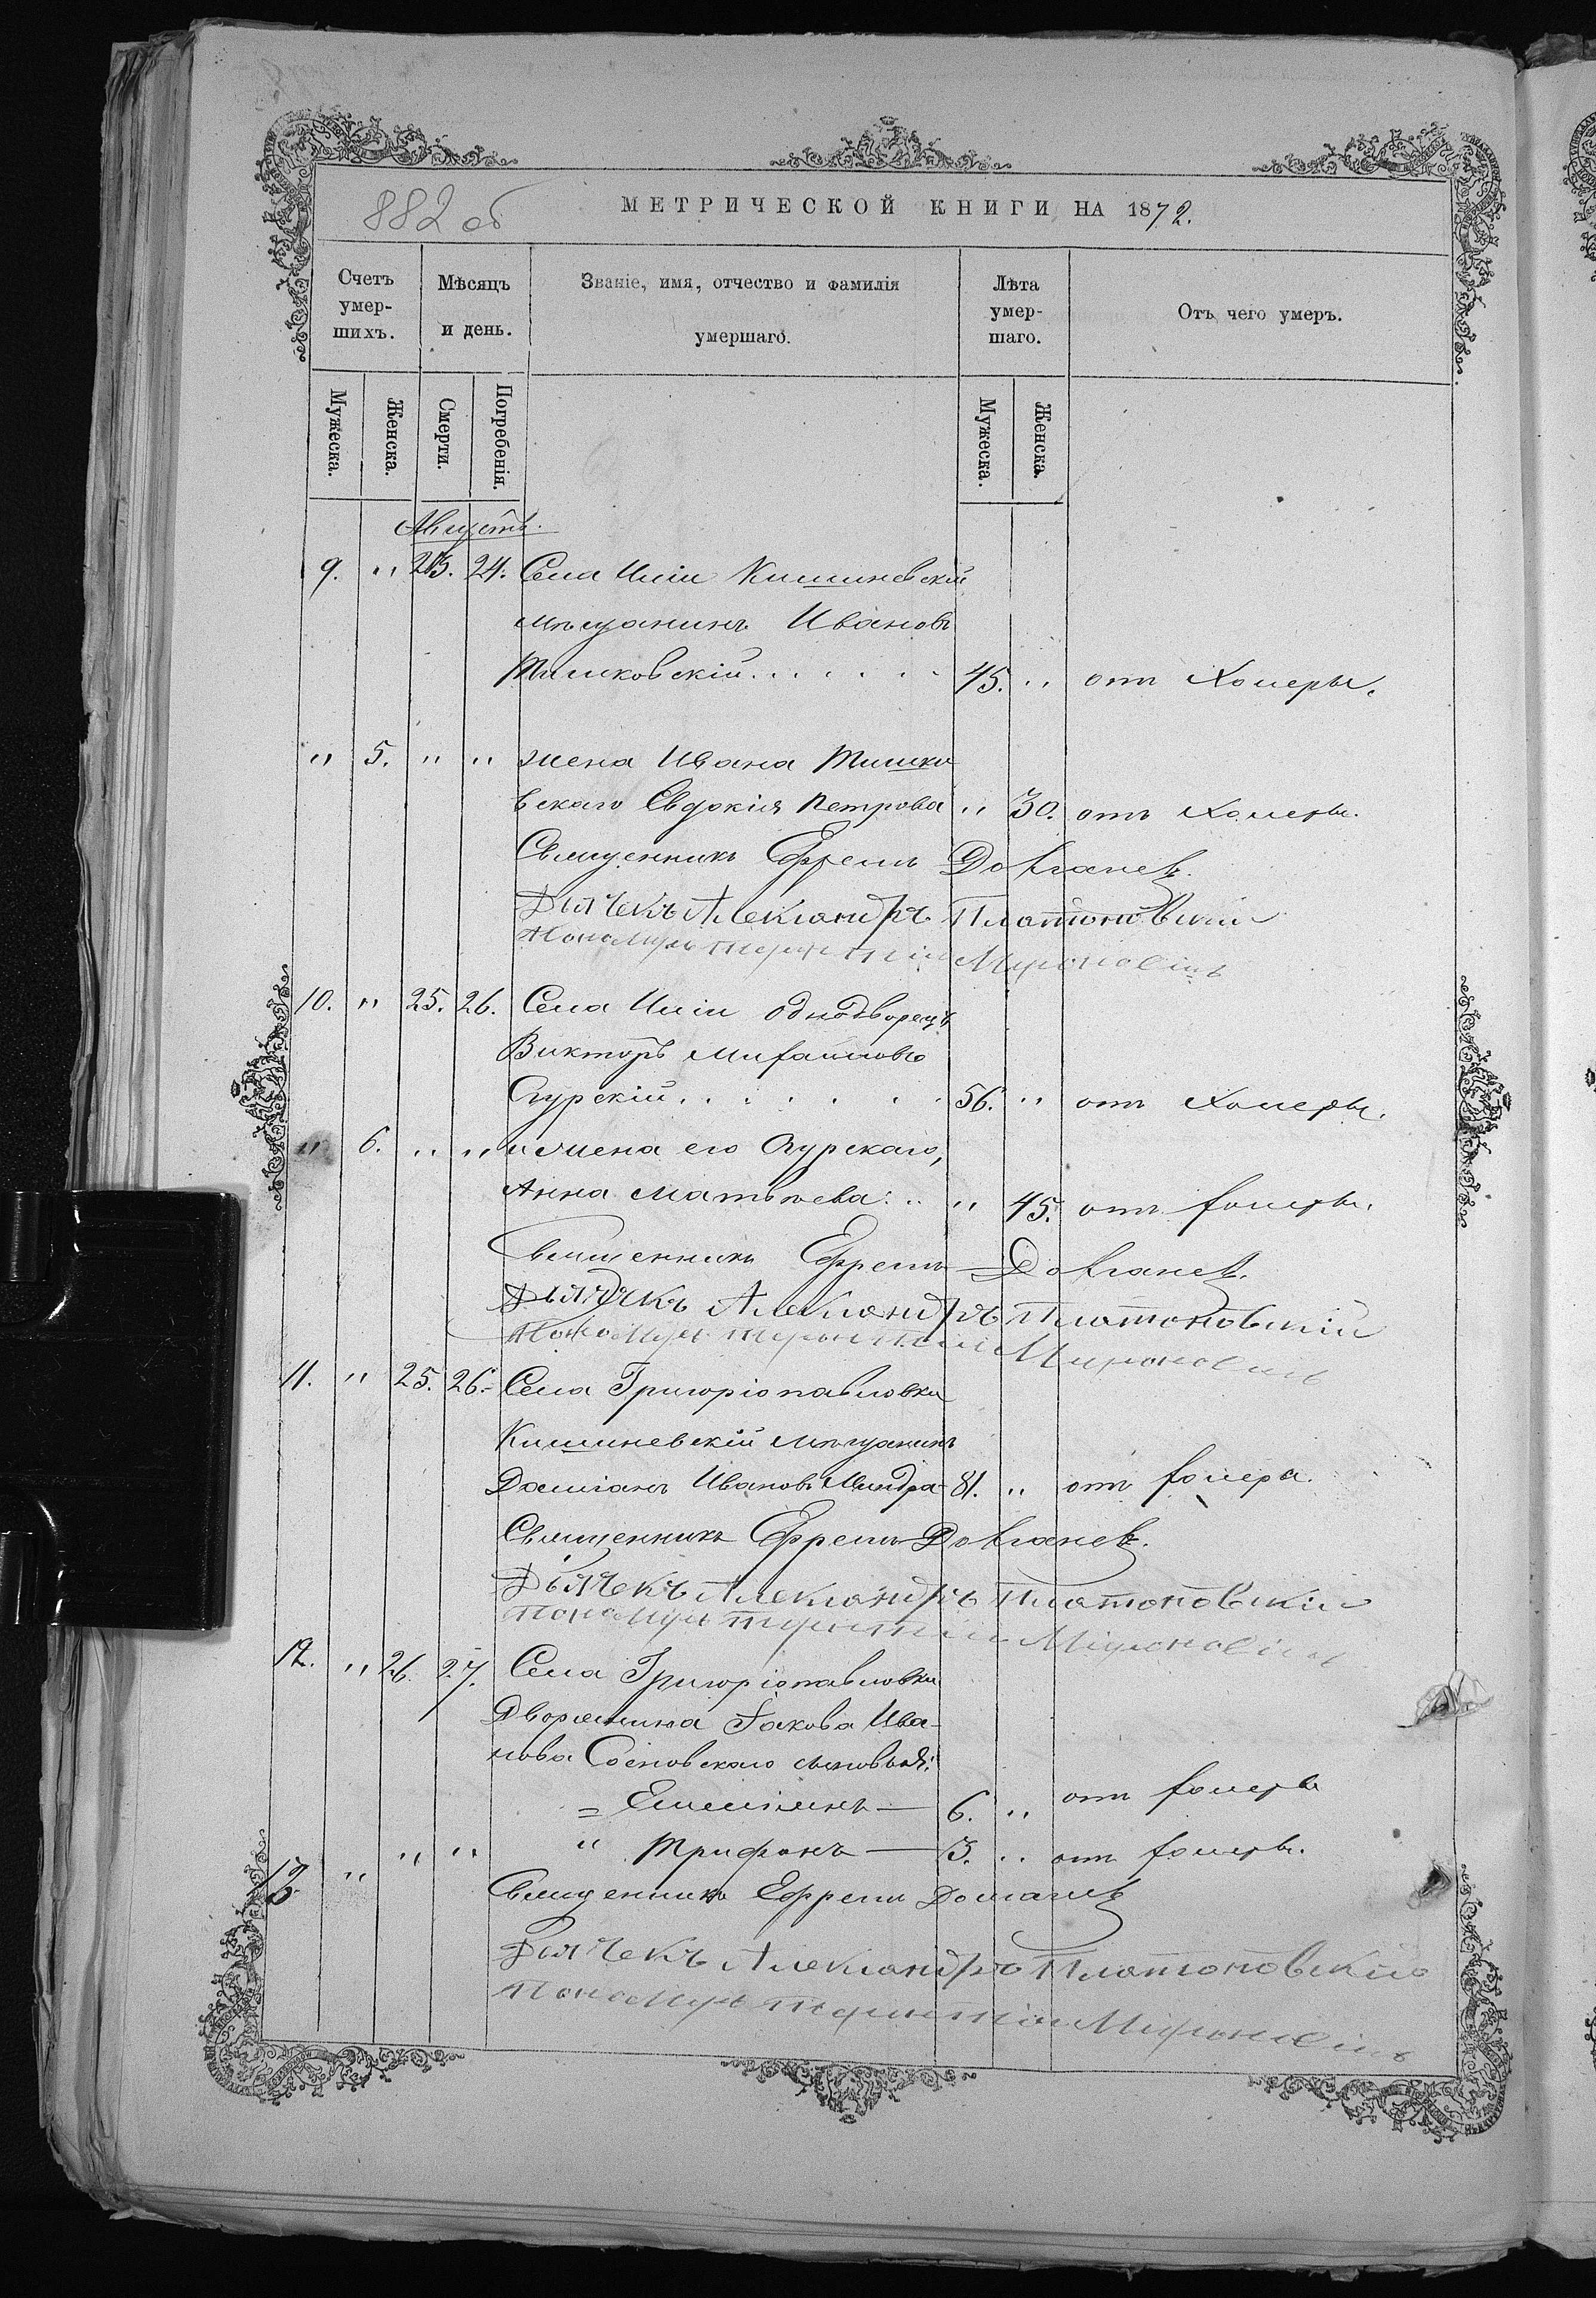 882 об
МЕТРИЧЕСКОЙ КНИГИ НА 1872.
Счетъ умер-шихъ.
Мѣсяцъ и день.
Званіе, имя, отчество и фамилія умершаго.
Лѣта умер-шаго.
Отъ чего умеръ.
Мужеска.
Женска.
Смерти.
Погребенія.
Мужеска.
Женска.
Августъ.
9. " 23. 24. Села Кишиневскій
мѣщанинъ Ивановъ
Тишковскій . . . . . . 45. " отъ Холеры.
" 5. " " жена Ивана Тишко
вскаго Евдокія Петрова " 30. отъ Холеры.
Священникъ Ефремъ
Дьячекъ Александръ Платоновскій
Пономарь Терентій Мироновичъ
10. " 25. 26. Села однодворецъ
Викторъ Михайловъ
Огурскій . . . . . . 56. " отъ Холеры.
" 6. " " и жена его Огурскаго,
Анна Матвѣева . . " 45. отъ холеры.
Священникъ Ефремъ
Дьячекъ Александръ Платоновскій
Пономарь Терентій Мироновичъ
11. " 25. 26. Села Григоріопавловки
Кишиневскій мѣщанинъ
Даміанъ Ивановъ 81. " отъ холера.
Священникъ Ефремъ
Дьячекъ Александръ Платоновскій
Пономарь Терентій Мироновичъ
12. " 26. 27. Села Григоріопавловки
Дворянина Іакова Ива-
нова Сосновскаго сыновья:
= Емиліянъ — 6. " отъ холеры
13 " " " " Трифонъ — 3. " отъ холеры.
Священникъ Ефремъ
Дьячекъ Александръ Платоновскій
Пономарь Терентій Мироновичъ